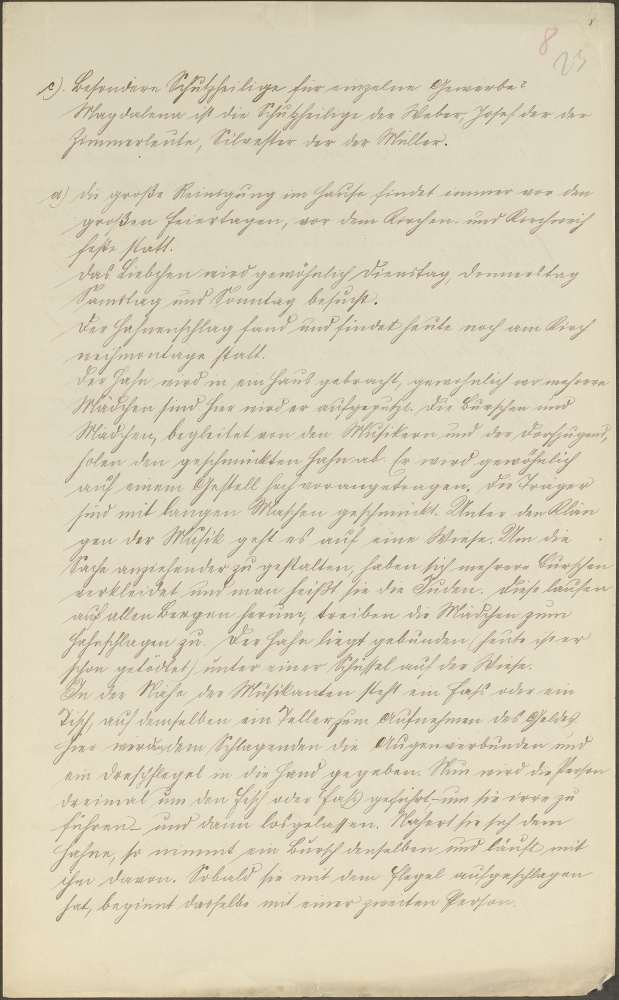 8
23
c). Besondere Schutzheilige für einzelne Gewerbe?
Magdalena ist die Schutzheilige der Weber, Josef der der
Zimmerleute, Silvester der der Müller.
a) die große Reinigung im Hause findet immer vor den
großen Feiertagen, vor dem Kirchen- und Kirchweih
feste statt.
Das Liebchen wird gewöhnlich Dienstag, Donnerstag
Samstag und Sonntag besucht.
Der Hahnenschlag fand und findet heute noch am Kirch
weihmontage statt.
Der Hahn wird in ein Haus gebracht, gewöhnlich wo mehrere
Mädchen sind hier wird er aufgeputzt. Die Burschen und
Mädchen, begleitet von den Musikern und der Dorfjugend,
holen den geschmückten Hahn ab. Er wird gewöhnlich
auf einem Gestell hoch vorangetragen. Die Träger
sind mit langen Maschen geschmückt. Unter den Klän
gen der Musik geht es auf eine Wiese. Um die
Sache anziehender zu gestalten, haben sich mehrere Burschen
verkleidet und man heißt sie die Juden. Diese laufen
auf allen Bergen herum, treiben die Mädchen zum
Hahnschlagen zu. Der Hahn liegt gebunden (heute ist er
schon getödtet) unter einer Schüssel auf der Wiese.
In der Nähe der Musikanten steht ein Faß oder ein
Tisch, auf demselben ein Teller zum Aufnehmen des Geldes.
Hier werden dem Schlagenden die Augen verbunden und
ein Dreschflegel in die Hand gegeben. Nun wird die Person
dreimal um den Tisch oder Faß geführt, um sie irre zu
führen und dann losgelassen. Nähert sie sich dem
Hahne, so nimmt ein Bursch denselben und läuft mit
ihm davon. Sobald sie mit dem Flegel aufgeschlagen
hat, beginnt dasselbe mit einer zweiten Person.